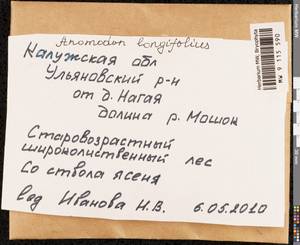 Anomodon longifolius
Калужская обл
Ульяновский р-н
от д. Нагая
Долина р. Мошон
Старовозрастный
широколиственный лес
Со ствола ясеня
Иванова Н.В. 6.05.2010
Herbarium MW, Bryophyta
MW 9 115 590